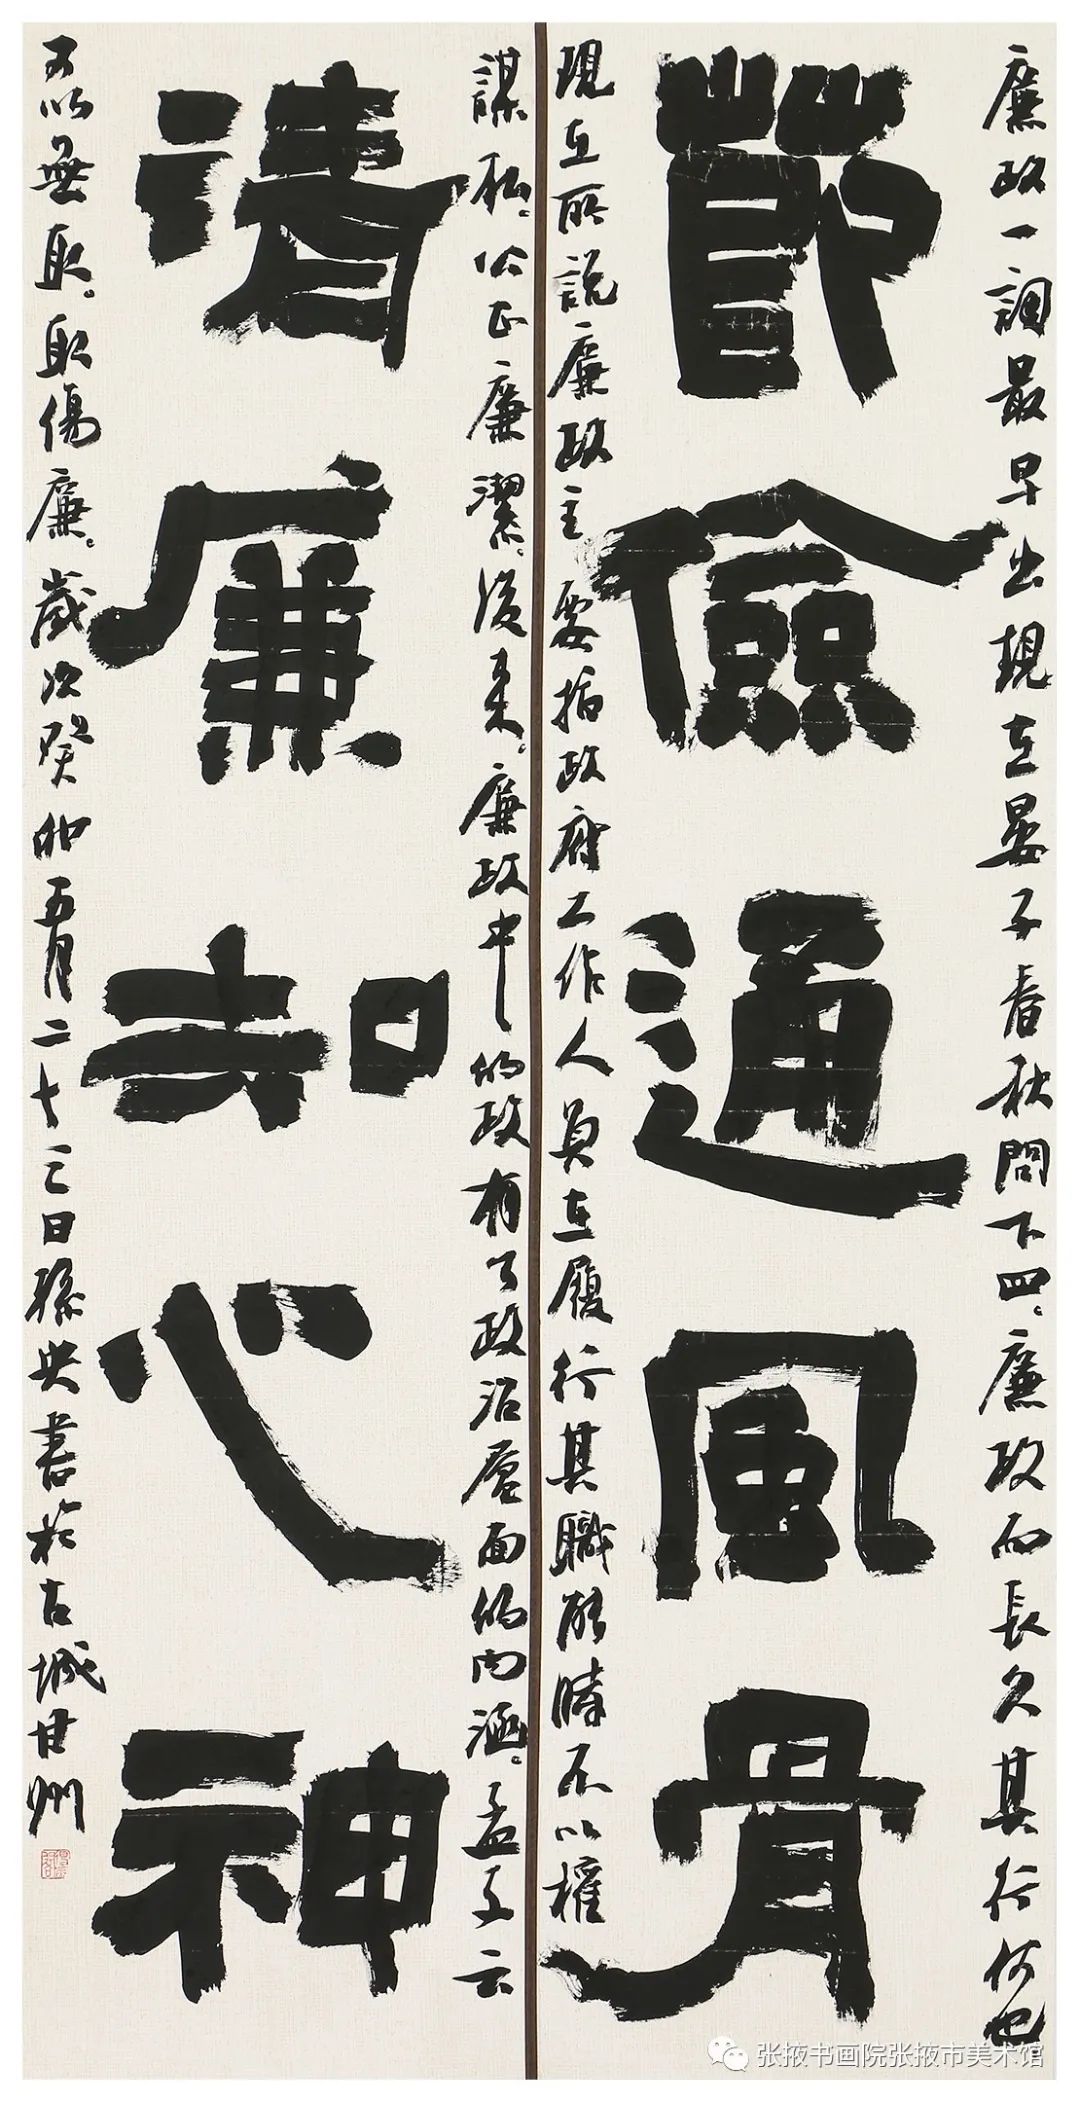 廉政一詞最早出現在晏子春秋問下四。廉政而長久其行何也。
節儉通風骨
現在所說廉政主要指政府工作人員在履行其職能時不以權
謀私。公正廉潔。後来。廉政中的政有了政治層面的内涵。孟子云
清廉知心神
可以無取。取傷廉。歲次癸卯五月二十三日孫央書於古城甘州
张掖书画院张掖市美术馆